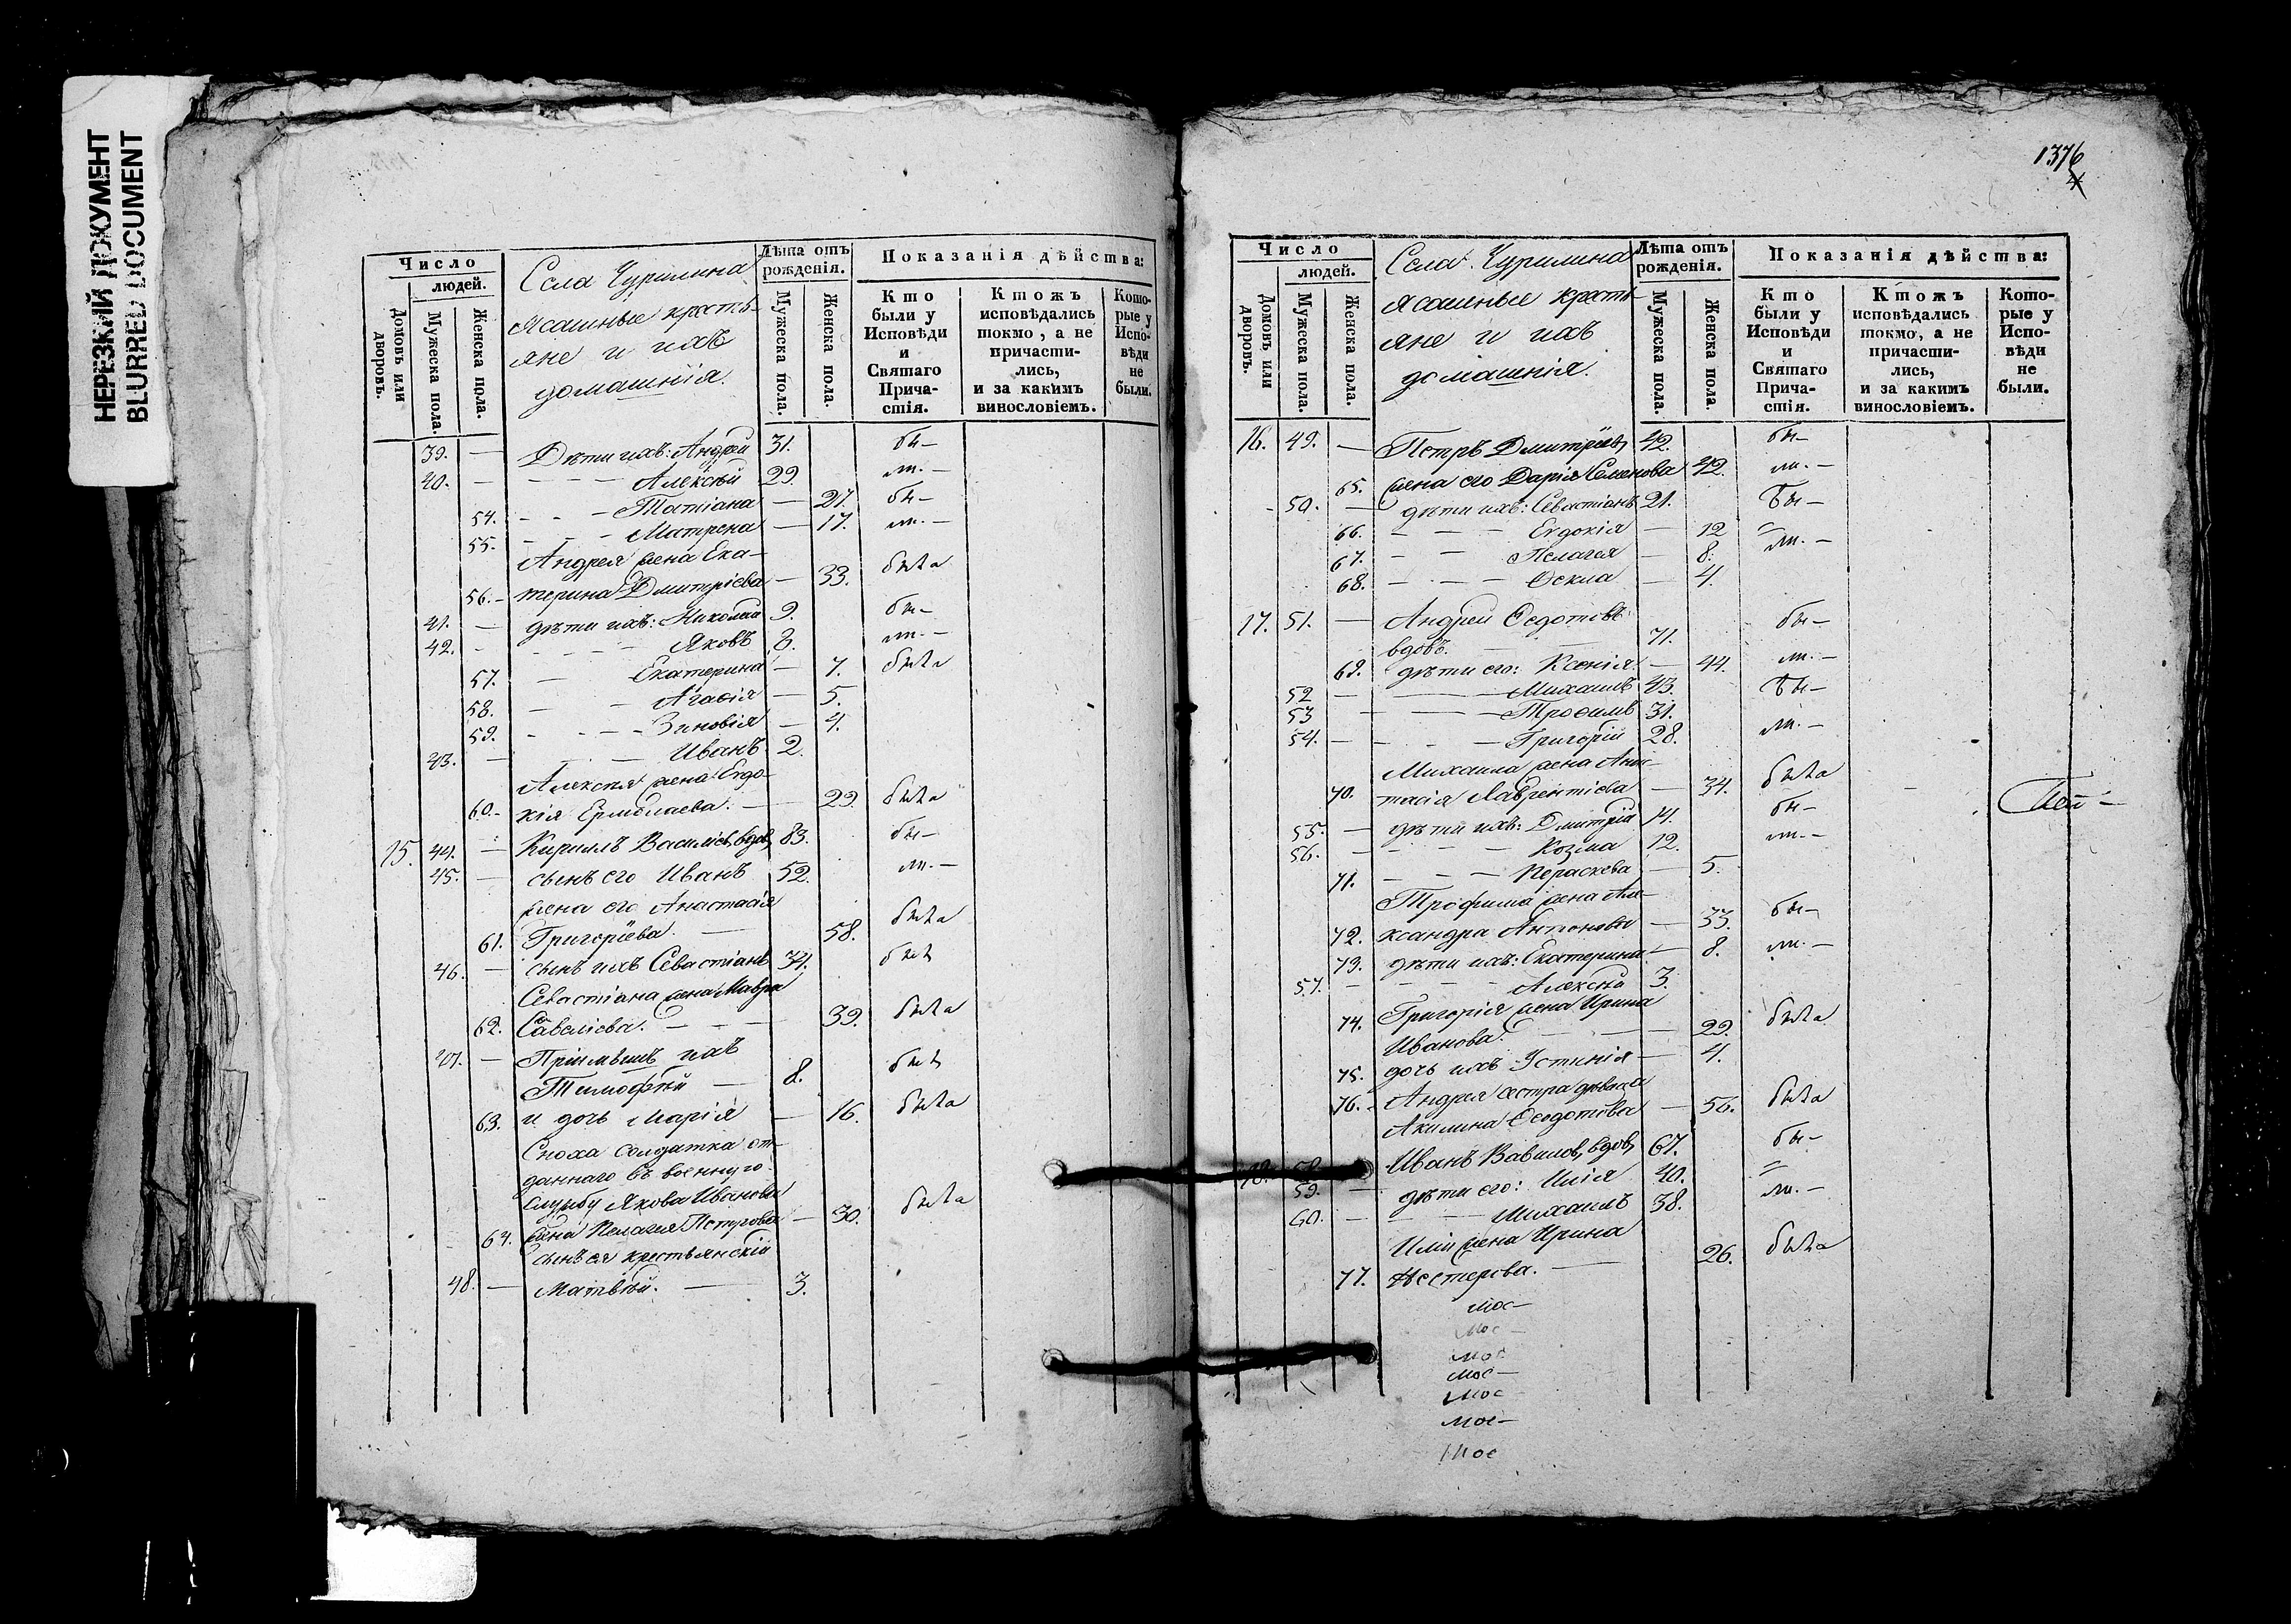 НЕРЕЗКИЙ ДОКУМЕНТ
BLURRED DOCUMENT
Число
людей.
Домовъ или дворовъ.
Мужеска пола.
Женска пола.
Села Чурилина
ясашные кресть-
яне и ихъ
домашнія.
Лѣта отъ рожденія.
Мужеска пола.
Женска пола.
Показанія дѣйства:
Кто были у Исповѣди и Святаго Прича-стія.
Ктожъ исповѣдались токмо, а не причасти-лись, и за какимъ винословіемъ.
Кото-рые у Испо-вѣди не были.
39. — Дѣти ихъ: Андрей 31. бы—
40. — Алексѣй 29. ли.—
54. Татіана — 21. бы—
55. Матрена — 17. ли.—
Андрея жена Ека-
56. терина Дмитріева — 33. была
41. — дѣти ихъ: Николай 9. бы—
42. — Яковъ 8. ли.—
57. Екатерина — 7. была
58. Агаѳія — 5.
59. Зиновія — 4.
43. — Иванъ 2.
Алексѣя жена Евдо-
60. кія Ермолаева. — 29. была
15. 44. — Кирилъ Василіев, вдов, 83. бы—
45. — сынъ его Иванъ 52. ли.—
жена его Анастасія
61. Григоріева. — 58. была
46. — сынъ ихъ Севастіанъ 34. былъ
Севастіана жена Мавра
62. Савеліева. — 39. была
47. — Пріимышъ ихъ
Тимоѳѣй — 8. былъ
63. и дочь Марія — 16. была
Сноха солдатка от-
даннаго въ военную
службу Якова Иванова
64. жена Пелагея Петрова — 30. была
сынъ ея крестьянскій
48. — Матвѣй. — 3.
1376
Число
людей.
Домовъ или дворовъ.
Мужеска пола.
Женска пола.
Села Чурилина
ясашные кресть-
яне и ихъ
домашнія.
Лѣта отъ рожденія.
Мужеска пола.
Женска пола.
Показанія дѣйства:
Кто были у Исповѣди и Святаго Прича-стія.
Ктожъ исповѣдались токмо, а не причасти-лись, и за какимъ винословіемъ.
Кото-рые у Испо-вѣди не были.
16. 49. — Петръ Дмитріев, 42. бы—
65. жена его Дарія Семенова 42. ли.—
50. — дѣти ихъ: Севастіанъ 21. бы—
66. Евдокія — 12
67. Пелагея — 8. ли.—
68. Ѳекла — 4.
17. 51. — Андрей Ѳедотовъ бы—
вдовъ. 71.
69. дѣти его: Ксенія — 44. ли.—
52 — Михаилъ 43. бы—
53 Трофимъ 31.
54. — Григорій 28. ли.—
Михаила жена Анас-
70. тасія Лаврентіева — 34. была
55. — дѣти ихъ: Дмитрій 14. бы—
56. — Козма 12. ли.—
71. Пераскева — 5.
Трофима жена Але-
72. ксандра Антонова — 33. бы—
73. дѣти ихъ: Екатерина — 8. ли.—
57. — Алексѣй 3.
74. Григорія жена Ирина
Иванова. — 29. была
75. дочь ихъ Устинія — 4.
76. Андрея сестра дѣвка
Акилина Ѳедотова — 56. была
18. 58. Иванъ Вавилов, вдов, 67. бы—
59. — дѣти его: Илія 40.
60. — Михаилъ 38. ли.—
Иліи жена Ирина
77. Нестерова. — 26. была
мос—
мос—
мос
мос—
мос—
мос—
мос